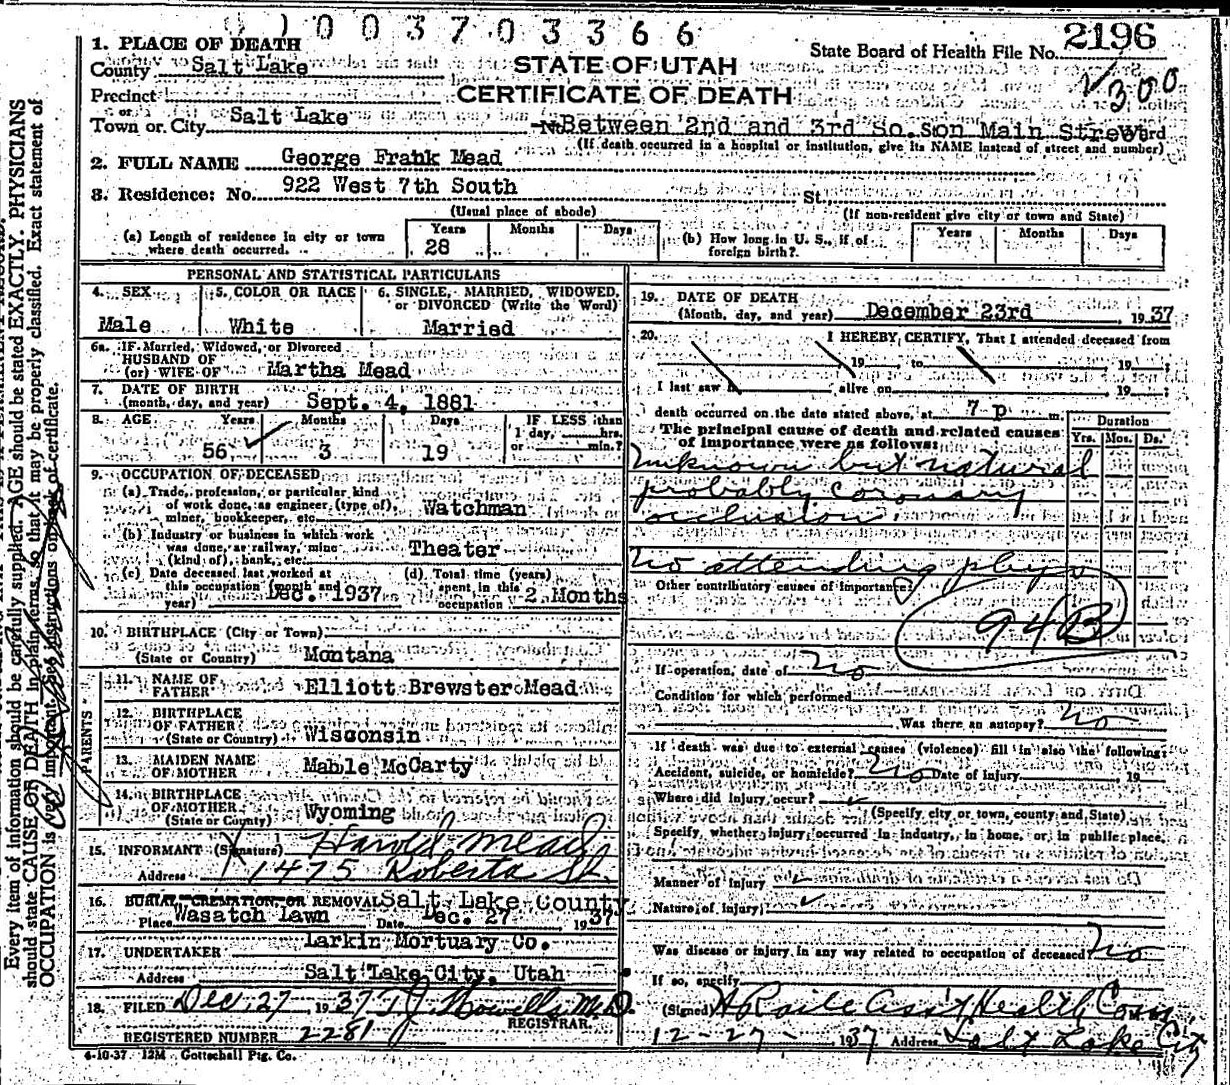 0 0 3 7 0 3 3 6 6
2196
State Board of Health File No.
√300
STATE OF UTAH
CERTIFICATE OF DEATH
1. PLACE OF DEATH
County Salt Lake
Precinct
or
Town or City Salt Lake
No. Between 2nd and 3rd So. on Main Street Ward
(If death occurred in a hospital or institution, give its NAME instead of street and number)
2. FULL NAME George Frank Mead
3. Residence: No. 922 West 7th South St.
(Usual place of abode)
(If non-resident give city or town and State)
(a) Length of residence in city or town where death occurred.
Years Months Days
28
(b) How long in U. S., if of foreign birth?
Years Months Days
PERSONAL AND STATISTICAL PARTICULARS
4. SEX
Male
5. COLOR OR RACE
White
6. SINGLE, MARRIED, WIDOWED, or DIVORCED (Write the Word)
Married
6a. IF Married, Widowed, or Divorced
HUSBAND OF
(or) WIFE OF Martha Mead
7. DATE OF BIRTH
(month, day, and year) Sept. 4, 1881
8. AGE Years Months Days IF LESS than
1 day, hrs.
or min.?
56 3 19
9. OCCUPATION OF DECEASED
(a) Trade, profession, or particular kind
of work done, as engineer (type of),
miner, bookkeeper, etc. Watchman
(b) Industry or business in which work
was done, as railway, mine
(kind of), bank, etc. Theater
(c) Date deceased last worked at
this occupation (month and
year) Dec. 1937
(d) Total time (years)
spent in this
occupation 2 Months
10. BIRTHPLACE (City or Town)
(State or Country) Montana
PARENTS
11. NAME OF
FATHER Elliott Brewster Mead
12. BIRTHPLACE
OF FATHER
(State or Country) Wisconsin
13. MAIDEN NAME
OF MOTHER Mable McCarty
14. BIRTHPLACE
OF MOTHER
(State or County) Wyoming
15. INFORMANT (Signature) Harold Mead
Address 1475 Roberta St.
16. BURIAL, CREMATION, OR REMOVAL Salt Lake County
Place Wasatch Lawn Date Dec. 27 1937
17. UNDERTAKER Larkin Mortuary Co.
Address Salt Lake City, Utah
18. FILED Dec 27 1937 T J Howells M.D.
REGISTRAR.
REGISTERED NUMBER 2281
4-10-37 12M Gottschall Ptg. Co.
19. DATE OF DEATH
(Month, day, and year) December 23rd, 1937
20. I HEREBY CERTIFY, That I attended deceased from
, 19 , to , 19 ;
I last saw h alive on , 19 ;
death occurred on the date stated above, at 7 p m.
The principal cause of death and related causes
of importance were as follows:
Duration
Yrs. Mos. Ds.
unknown but natural
probably coronary
occlusion.
No attending phys
Other contributory causes of importance:
94B
If operation, date of no
Condition for which performed
Was there an autopsy? no
If death was due to external causes (violence) fill in also the following:
Accident, suicide, or homicide? no Date of injury , 19
Where did injury occur?
(Specify city or town, county and State)
Specify whether injury occurred in industry, in home, or in public place.
Manner of injury
Nature of injury
Was disease or injury in any way related to occupation of deceased? no
If so, specify
(Signed) Ass't Health Com
12-27- 1937 Address Salt Lake City
Every item of information should be carefully supplied. AGE should be stated EXACTLY. PHYSICIANS
should state CAUSE OF DEATH in plain terms, so that it may be properly classified. Exact statement of
OCCUPATION is very important. See instructions on back of certificate.